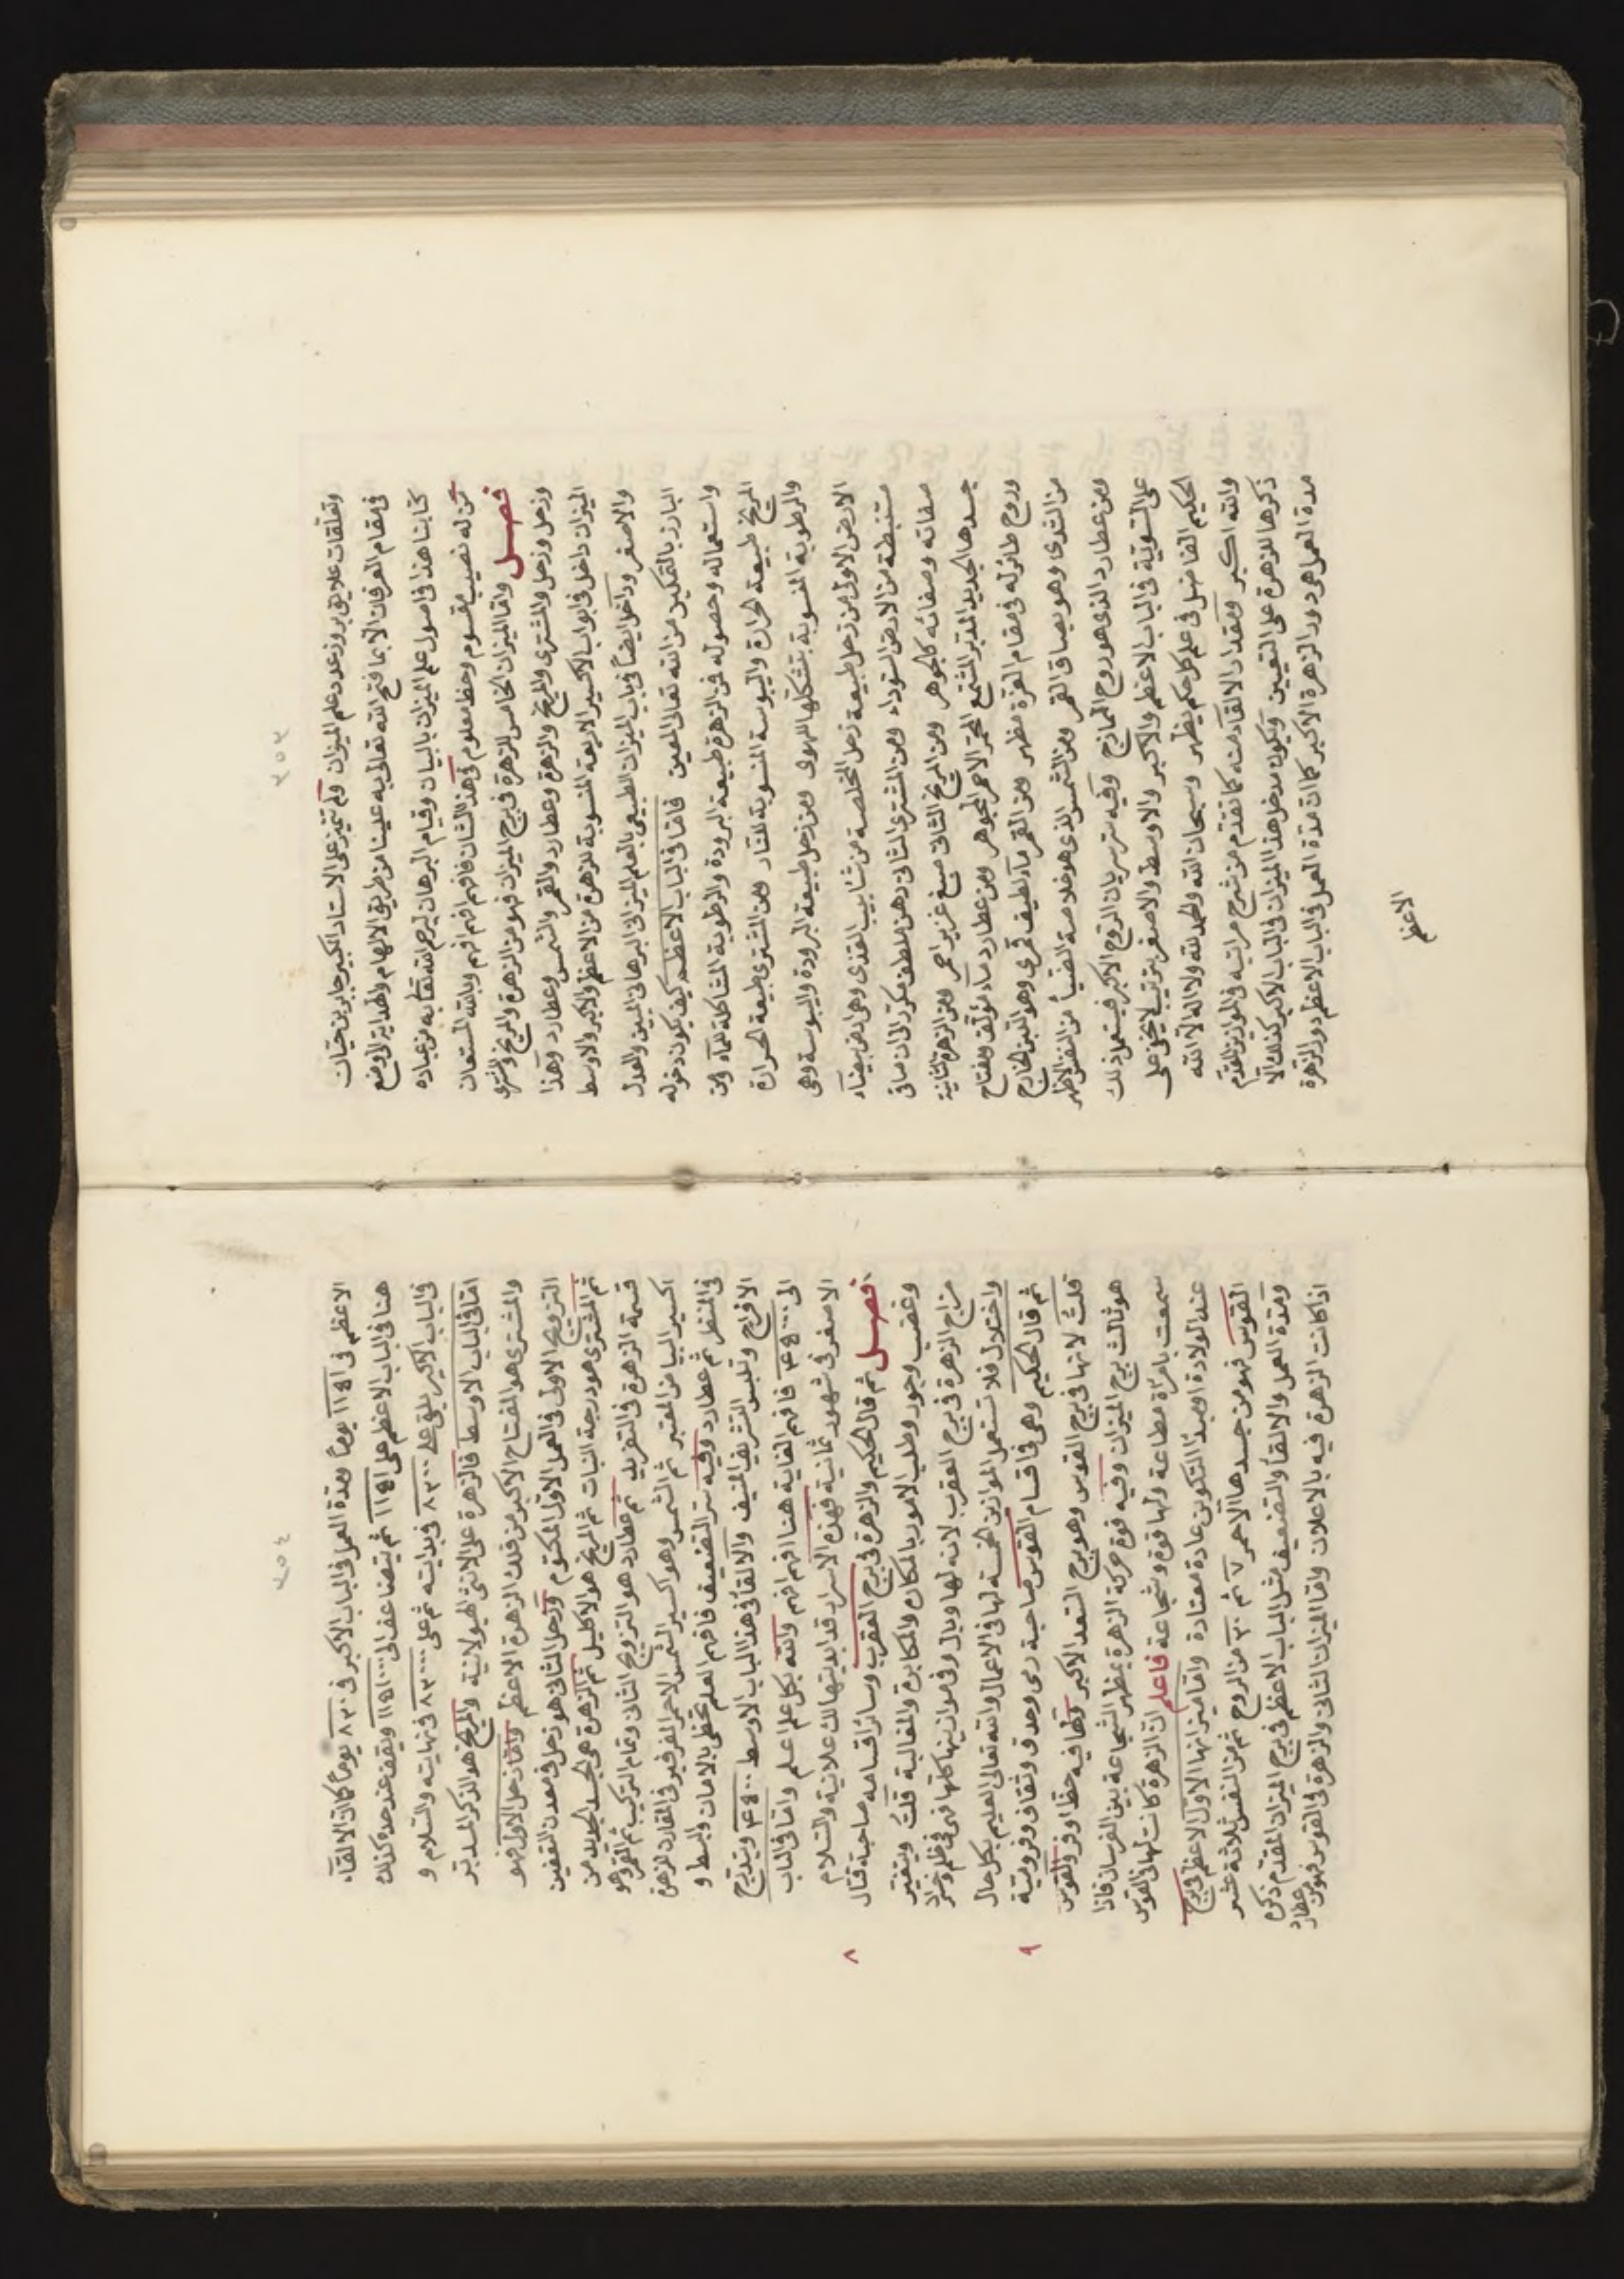 ٣٥٣
وتعلقات علايق بروز عدد علم الميزان ولم تتميز على الاستاد الكبير جابر بن حيان
فى مقام العرفان الا بما فتح الله تعالى به عينا من طريق الالهام والهداية لوضع
كتابنا هذا فى اصول علم الميزان بالبيان وقيام البرهان ليرحم الله تعالى به من عباده
من له نصيب مقسوم وحظ معلوم فى هذا الشان فافهم افهم افهم وبالله المستعان
فصل واما الميزان الخامس للزهرة فى برج الميزان فهو من الزهرة والمريخ والمشترى
وزحل وزحل والمشترى والمريخ والزهرة وعطارد والقمر والشمس وعطارد وهذا
الميزان داخل فى ابواب الاكسير الاربعة المنسوبة للزهرة من الاعظم والاكبر والاوسط
والاصغر وداخل ايضاً فى باب الميزان الطبيعى بالعلم الميزانى البرهانى المبين والعدل
البارز بالتمكين من الله تعالى المعين فاما فى الباب الاعظم كيف يكون دخوله
واستعماله وحصوله فمن الزهرة طبيعة البرودة والرطوبة المشاكلة للماء ومن
المريخ طبيعة الحرارة واليبوسة المنسوبة للنار ومن المشترى طبيعة الحرارة
والرطوبة المنسوبة بتشكلها للهوى ومن زحل طبيعة البرودة واليبوسة وهى
الارض الاولى من زحل طبيعة زحل المخلصة من شايب القذى وهى ارض بيضاء
مستنبطة من الارض السوداء ومن المشترى الثانى دهن ملطف مكرر الى ان صافى
صفاته وصفاته كالجوهر ومن المريخ الثانى صبغ غزير احمر ومن الزهرة الثانية
جسدها الجديد المدبر المشمع المحمر الاحمر الجوهر ومن عطارد ماء مؤلف ومفتاح
وروح طائر له فى مقام العزة مظهر ومن القمر ماء لطيف قمرى وهو اللبن الخارج
من الثدى وهو بصاق القمر ومن الشمس الذى هو خلاصة الضيا من النفس الاظهر
ومن عطارد الذى هو روح الممازج وفيه سر سريان الروح الاكبر فيستعمل ذلك
على التسوية فى الباب الاعظم والاكبر والاوسط والاصغر بترتيب لا يخفى على
الحكيم الفاضل فى علم كل حكم يظهر وسبحان الله والحمد لله ولا اله الا الله
والله اكبر ومقدار الالقاء منه كما تقدم من شرح مراتبه فى الموازين المتقدم
ذكرها للزهرة على التعيين ويكون مدخل هذا الميزان فى الباب الاكبر كذلك الا
مدة العمل هى دور الزهرة الاكبر كما ان مدة العمل فى الباب الاعظم دور الزهرة
الاعظم
٣٥٤
الاعظم فى ١١٥١ يوماً ومدة العمل فى الباب الاكبر فى ٨٣٠ يوماً كما ان الالقاء
هنا فى الباب الاعظم على ١١٥١ ثم يتضاعف الى ١١٥١٠٠٠ ويقف عند حده كذلك
فى الباب الاكبر يلقى على ٨٣٠٠ فى بدايته ثم على ٨٣٠٠٠٠ فى نهايته والسلام و
اما فى الباب الاوسط فالزهرة على الانثى الهيولانية والمريخ هو الذكر المدبر
والمشترى هو المفتاح الاكبر من فلك الزهرة الاعظم واما زحل الاول فهو
التزويج الاول فى العمل الاول المكتوم وزحل الثانى هو زحل فى معدن التعفين
ثم المشترى هو درجة النبات ثم المريخ هو الاكليل ثم الزهرة هى الجسد الجديد من
قسمة الزهرة فى التقريب ثم عطارد هو التزويج الثانى وتمام التركيب ثم القمر وهو
اكسير البياض المعتبر ثم الشمس وهو اكسير الشمس الاحمر المفرفير فى المقارن للزهرة
فى المنظر ثم عطارد وفيه سر التضعيف فافهم العلم تحظى بالامان والبسط و
الافراح وتلبس التشريف المنيف والالقاء فى هذا الباب الاوسط ٤٥٠٠ ويتدرج
الى ٤٥٠٠٠ فافهم الغاية هنا افهم افهم والله بكل علم اعلم واما فى الباب
الاصغر فى شهور ثمانية فهذه الاسرار قد ابديتها لك علانية والسلام
فصل ثم قال الحكيم والزهرة فى برج العقرب وسائر اقسامه صاحبة قتال
٨
وغضب وجور وطلب الامور بالمكاره والمكابرة والمغالبة قلت ويتغير
مزاج الزهرة فى برج العقرب لانه لها وبال وفى موازينها كلها فهى فى ظلم وضرر
واختلال فلا تستعمل الموازين الخمسة لها فى الاعمال والله تعالى العليم بكل حال
ثم قال الحكيم وهى فى اقسام القوس صاحبة رمى وحدق وثقاف وفروسية
٩
قلت لانها فى برج القوس وهو برج السعد الاكبر ولها فيه حظ اوفر والقوس
هو ثالث برج الميزان وفيه قوة حركة الزهرة بمظهر الشجاعة بين الفرسان فاذا
سمعت بامراة مطاعة ولها قوة وشجاعة فاعلم ان الزهرة كانت لها فى القوس
عند الولادة او مبدأ التكوين عادة معتادة واما ميزانها الاول الاعظم فى برج
القوس فهو من جسدها الاحمر ٧ ثم ٣٠ من الروح ثم من النفس ثلاثة عشر
ومدة العمل والالقاء والتضعيف مثل الباب الاعظم فى برج الميزان المقدم ذكره
اذا كانت الزهرة فيه بالاعلان واما الميزان الثانى والزهرة فى القوس فهو من عطارد